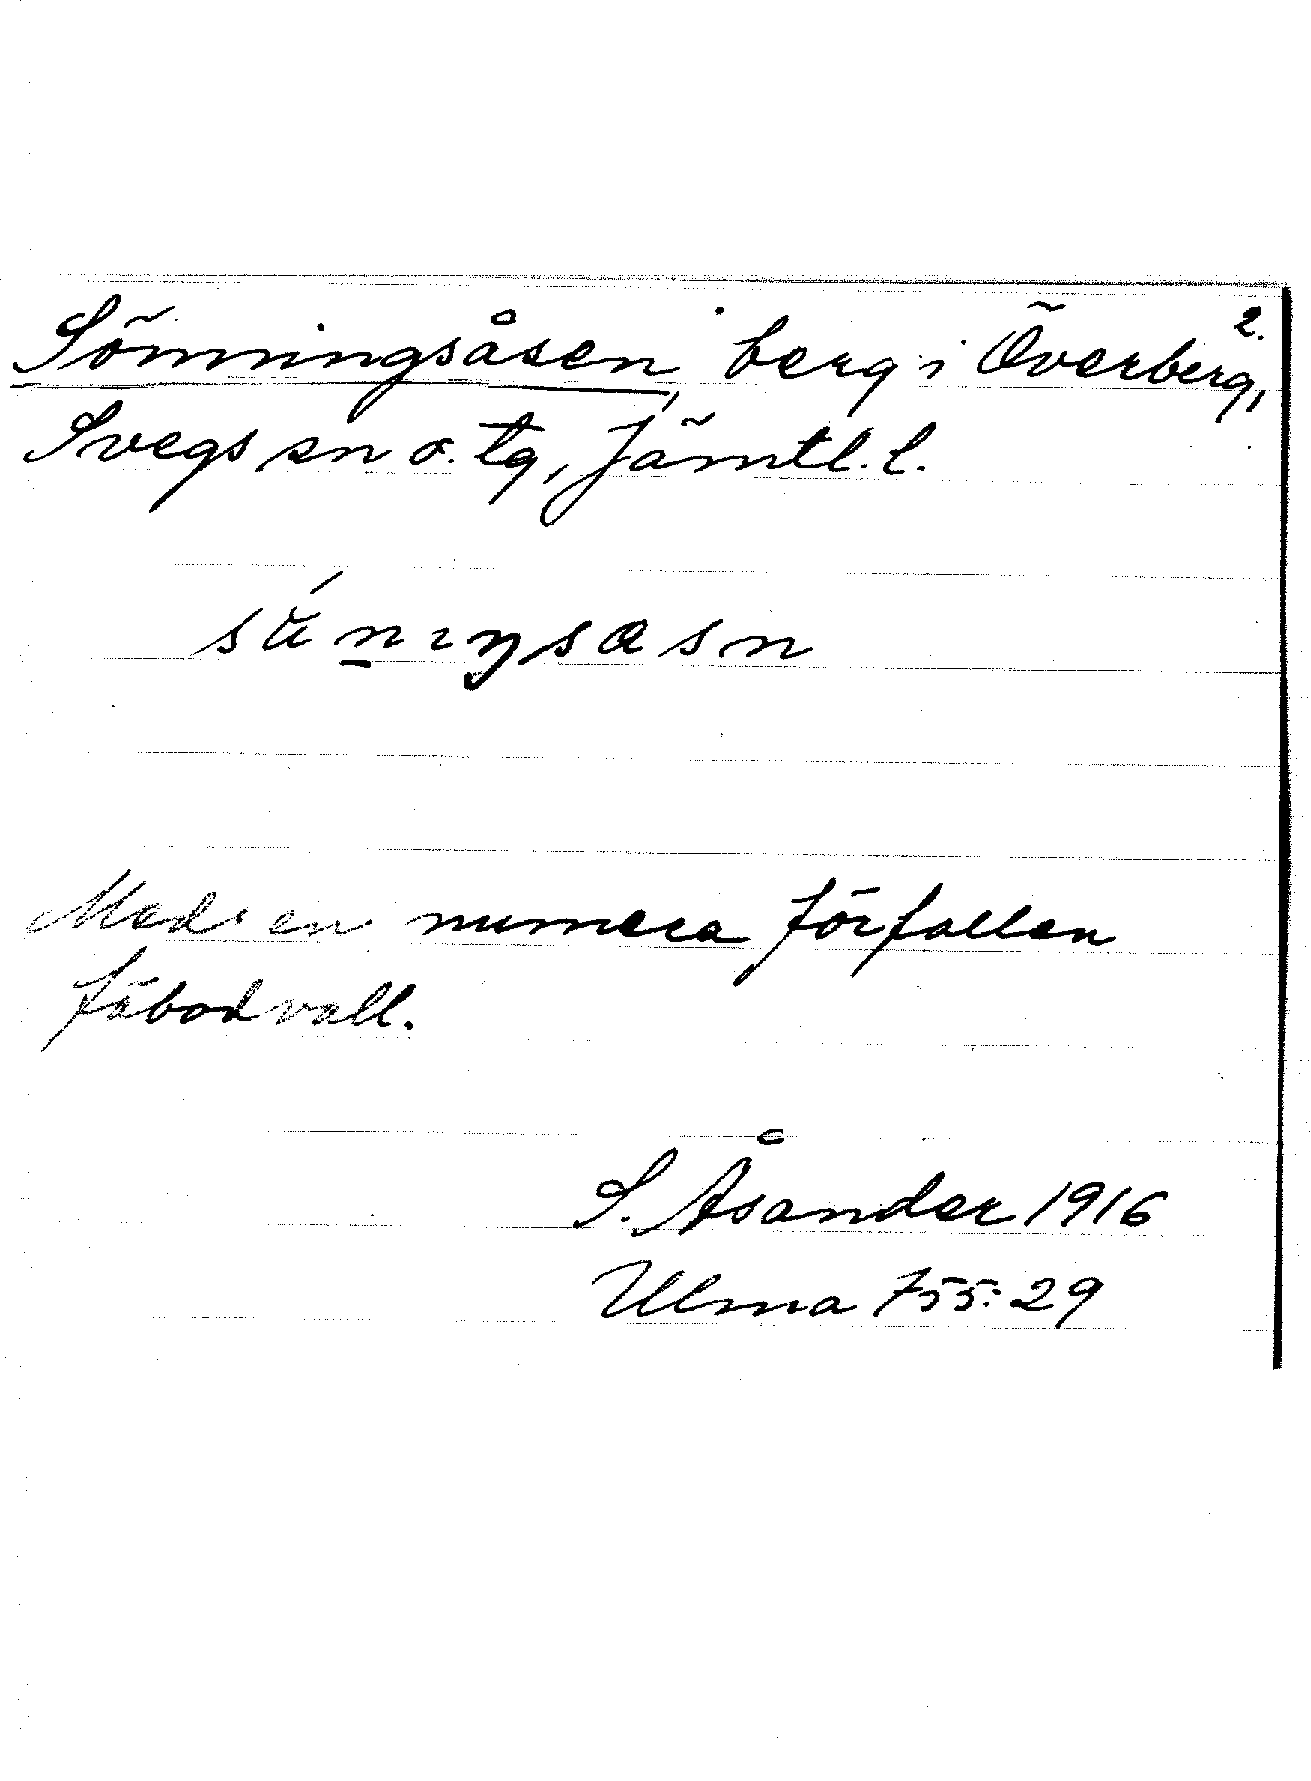 2.
Sönningsåsen, berg i Överberg,
Svegs sn o. tg, Jämtl. l.
Med en numera förfallen
fäbodvall.
S. Åsander 1916
Ulma 755:29